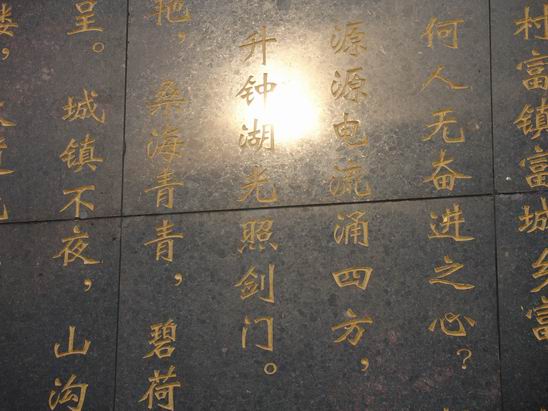 村富镇富城乡富
何人无奋进之心？
源源电流涌四方，
升钟湖光照剑门。
艳，桑海青青，碧荷
呈。城镇不夜，山沟
楼，